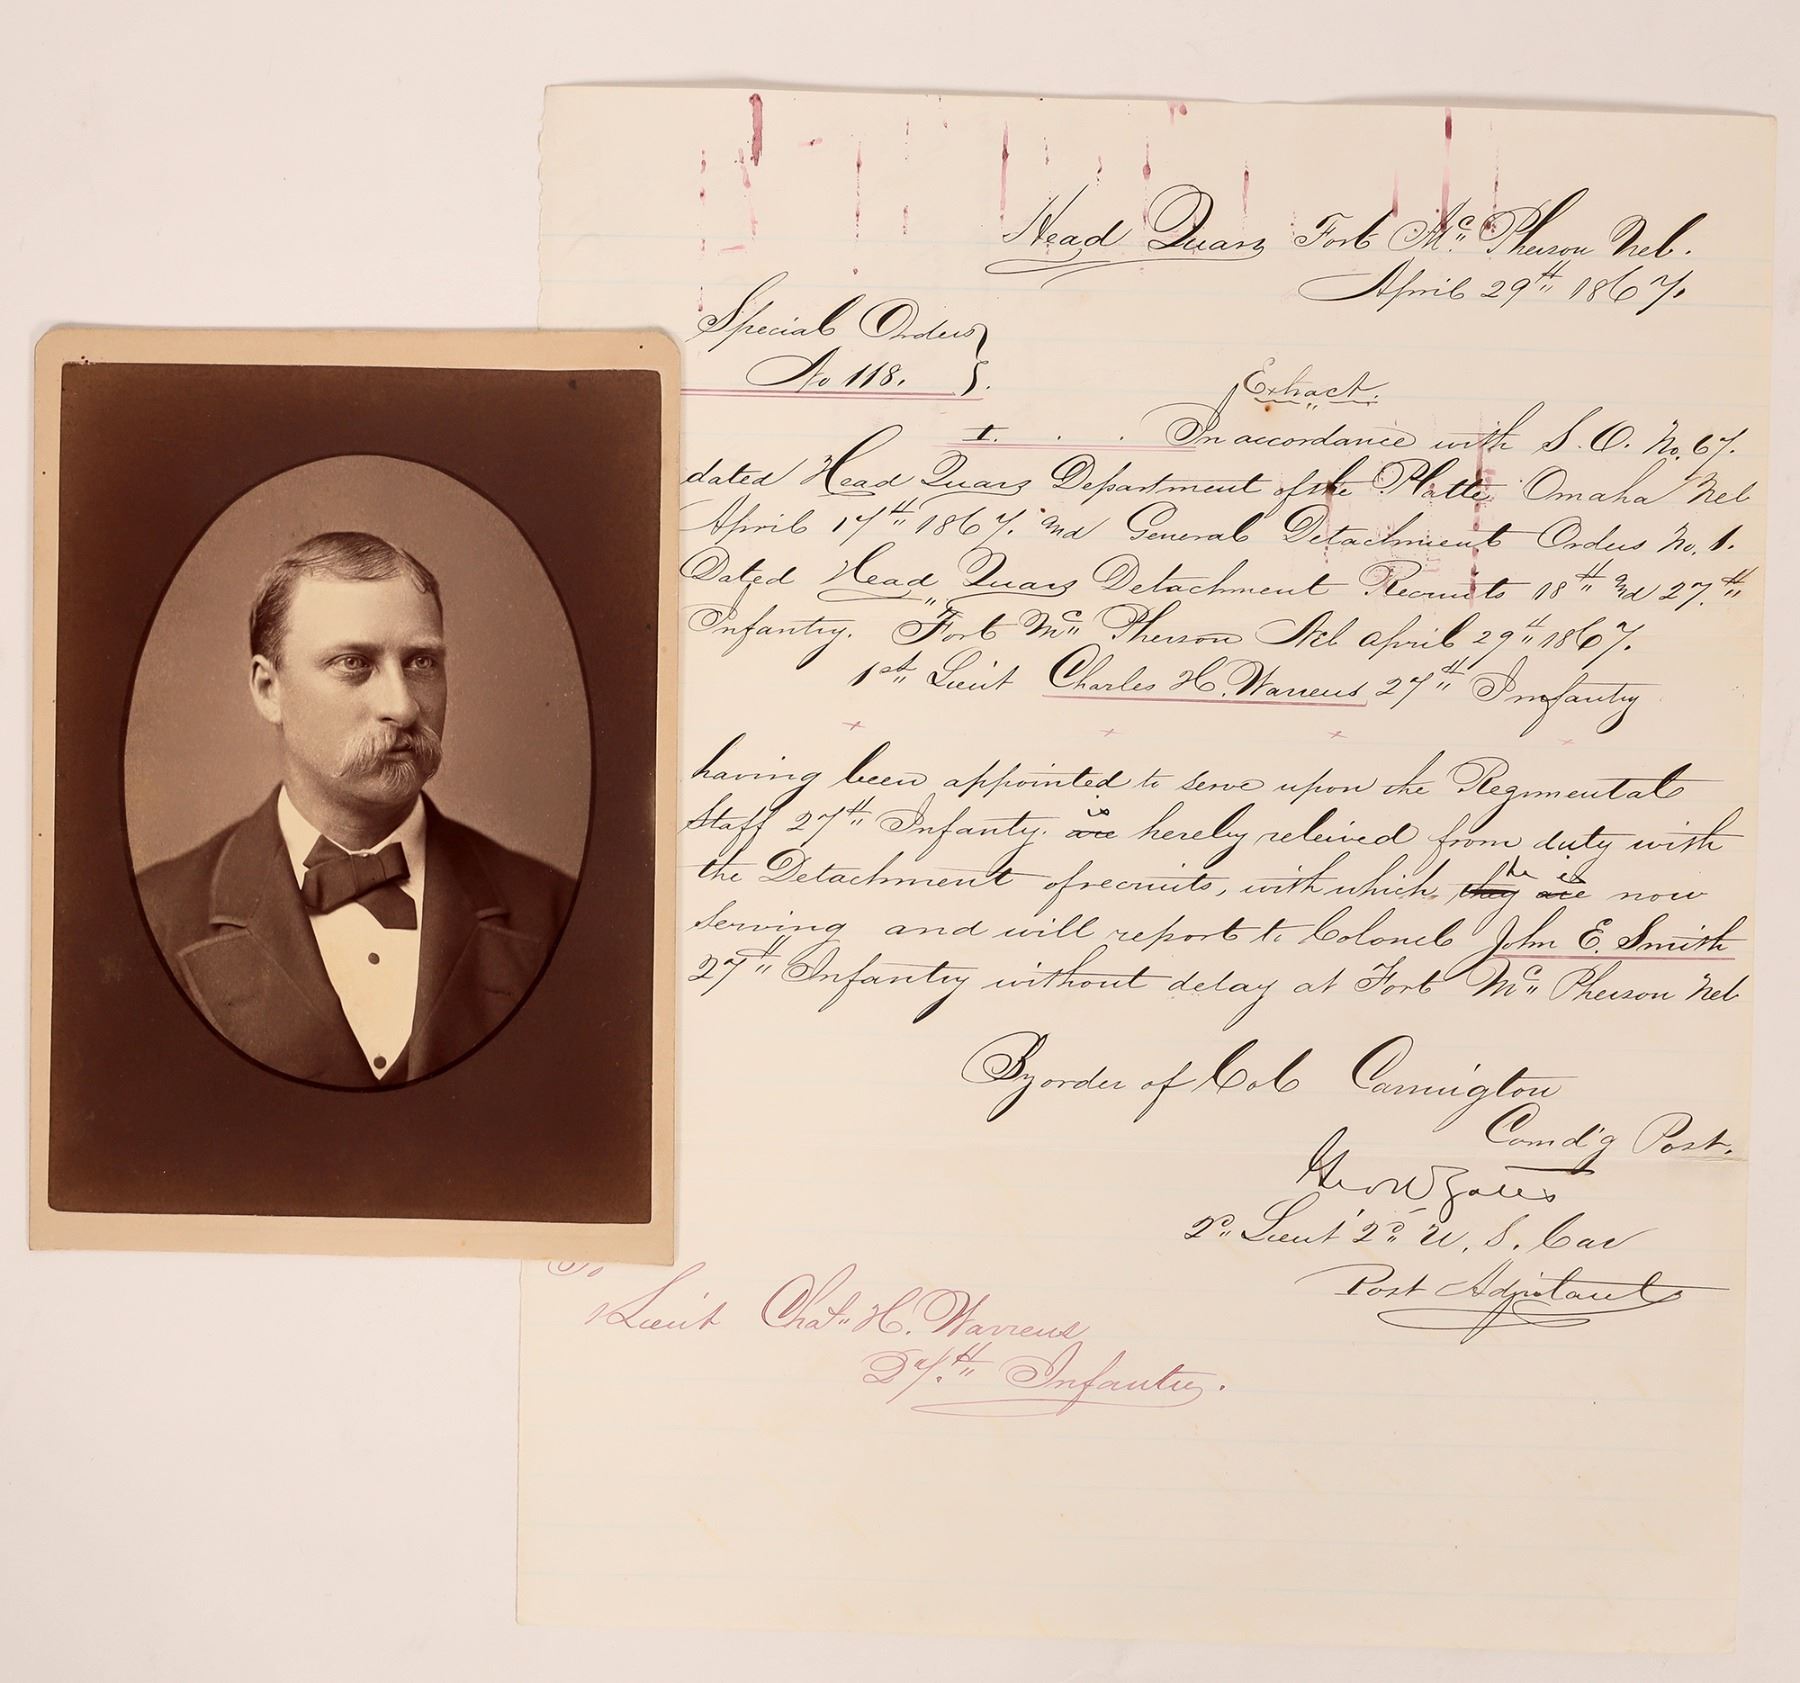 Head Quars Fort Mc Pherson Neb.
April 29th 1867.
Special Orders
No 118.
Extract.
I. . . In accordance with S. O. No. 67.
dated Head Quars Department of the Platte Omaha Neb
April 17th 1867. and General Detachment Orders No. 1.
Dated Head Quars Detachment Recruits 18th and 27.th
Infantry. Fort Mc Pherson Neb April 29th 1867.
1st Lieut Charles H. Warrens 27th Infantry
+ + + +
having been appointed to serve upon the Regimental
Staff 27th Infanty. are is hereby releived from duty with
the Detachment of recruits, with which they he are is now
serving and will report to Colonel John E. Smith
27th Infantry without delay at Fort Mc Pherson Neb
By order of Col Carrington
Comd'g Post.
Geo W Yates
2d Lieut 2d U. S. Cav
Post Adjutant
To
1 Lieut Chas H. Warrens
27.th Infantry.